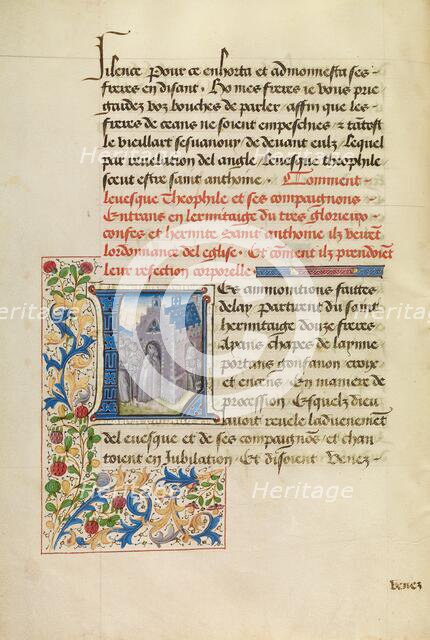 silence Pour ce enhorta et admonnesta ses
freres en disant. Ho mes freres ie vous prie
gardez voz bouches de parler affin que les
freres de ceans ne soient empeschies & tantost
le vieillart sesuanouy de deuant eulz Lequel
par reuelation del angle leuesque theophile
sceut estre saint anthoine. Comment
leuesque Theophile et ses compaignons
Entrans en lermitaige du tres glorieux
confes et hermite Saint anthoine ilz beirent
lordonnance del eglise. Et coment ilz prendoient
leur refection corporelle
Les ammonitions faittes
delay partirent du saint
hermitaige douze freres
Apans chapes de layne
portans gonfanon croix
et encens En maniere de
procession Esquelz dieu
auoit reuele laduenement
del euesque et de ses compaignons et chan
toient en Jubilation Et disoient Venez
Venez
Heritage
Heritage
Heritage
Heritage
Heritage
Heritage